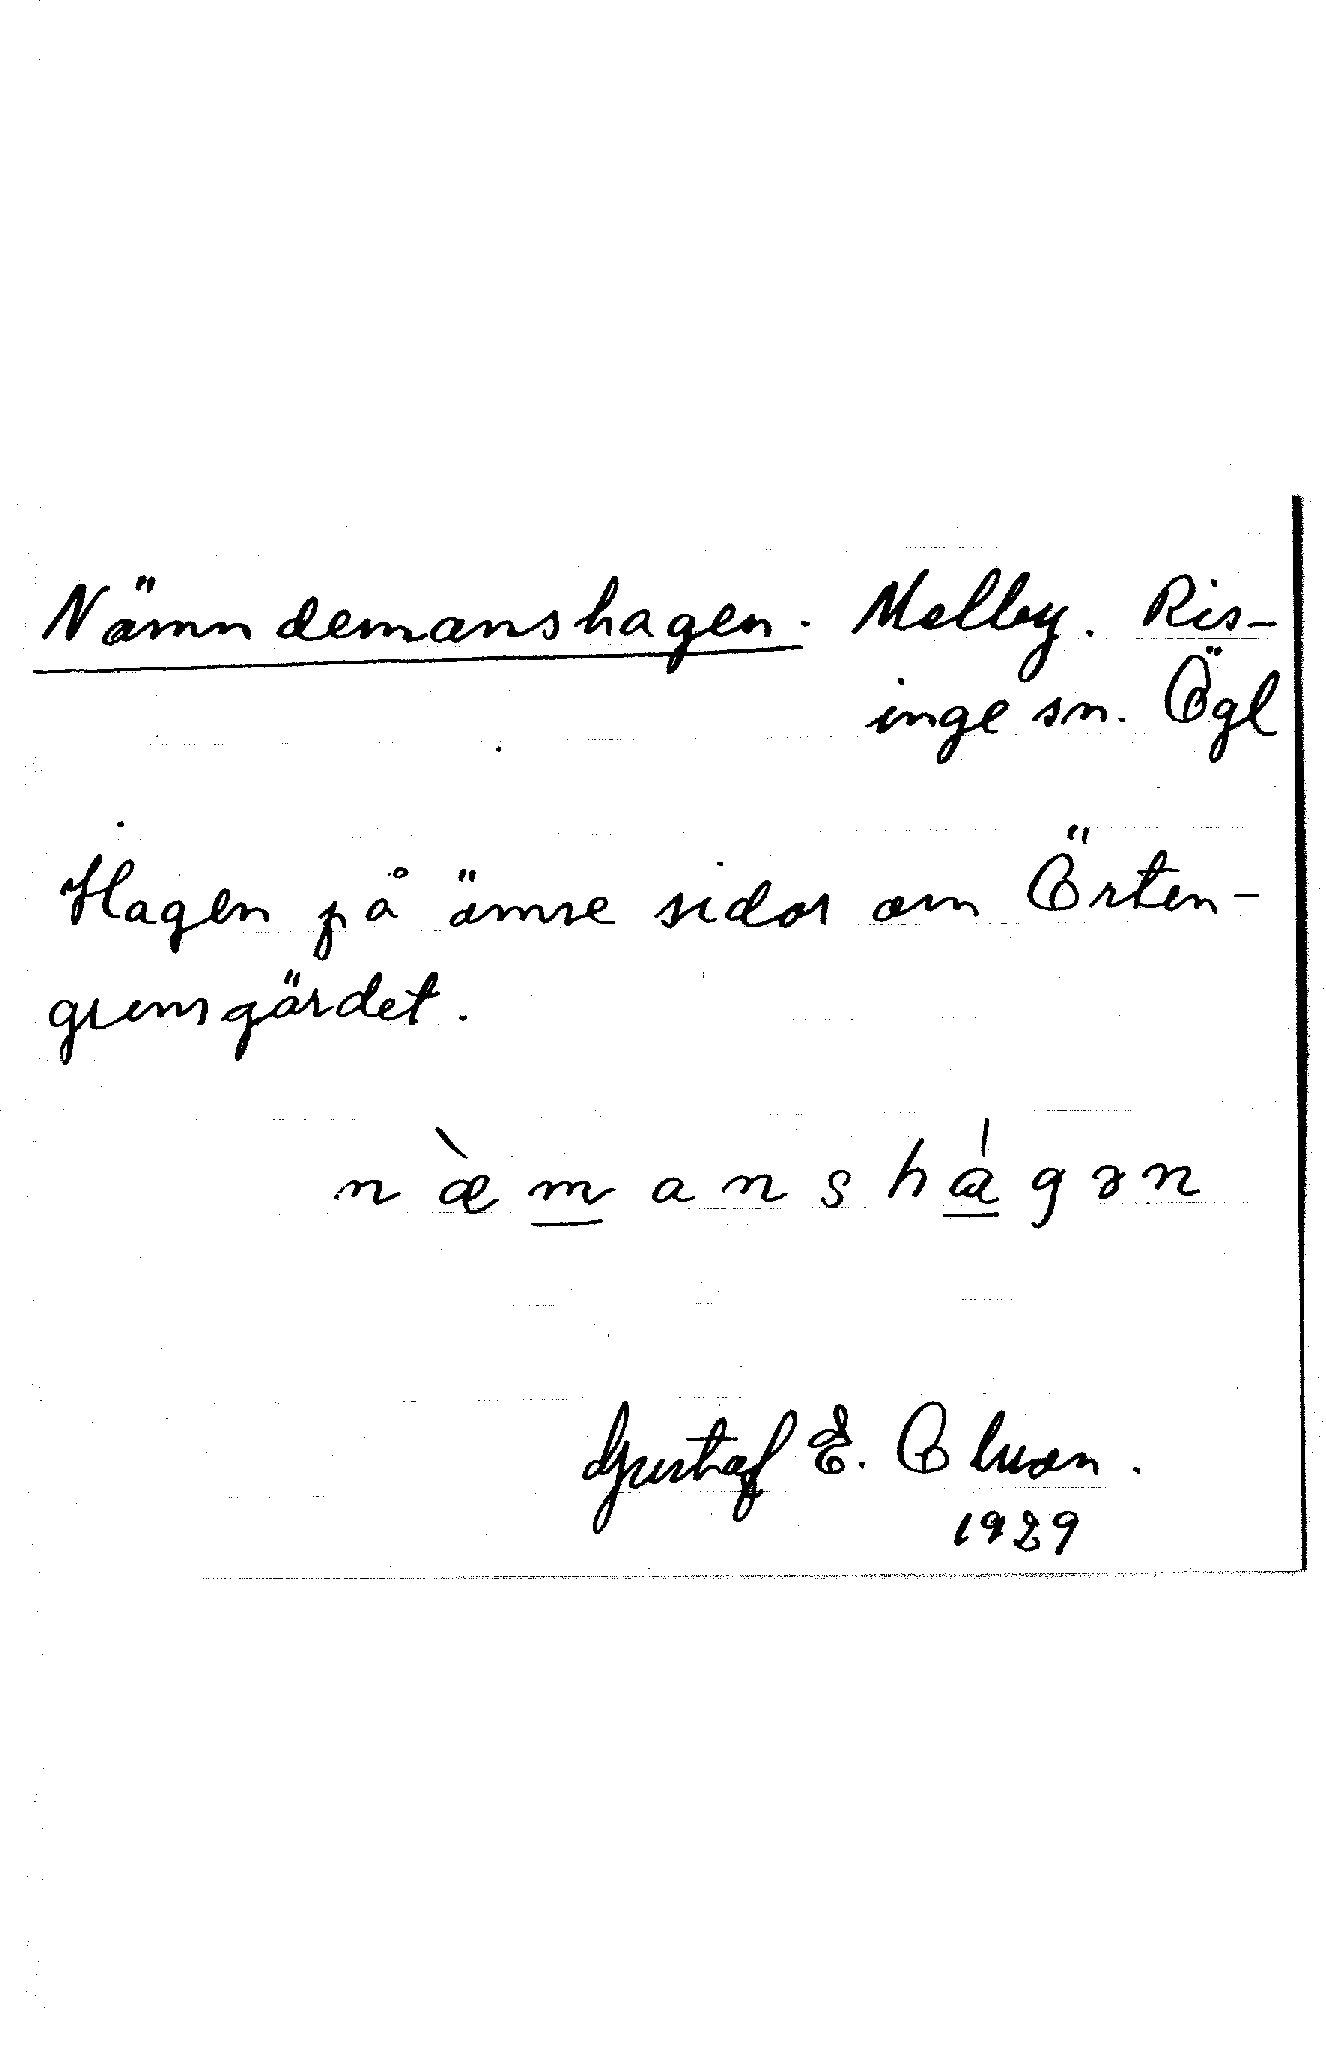 Nämndemanshagen. Melby. Ris-
inge sn. Ögl
Hagen på ömse sidor om Örten-
grensgärdet.
næ̀m̲anshɑ̲́gən
Gustaf E. Olson.
1929